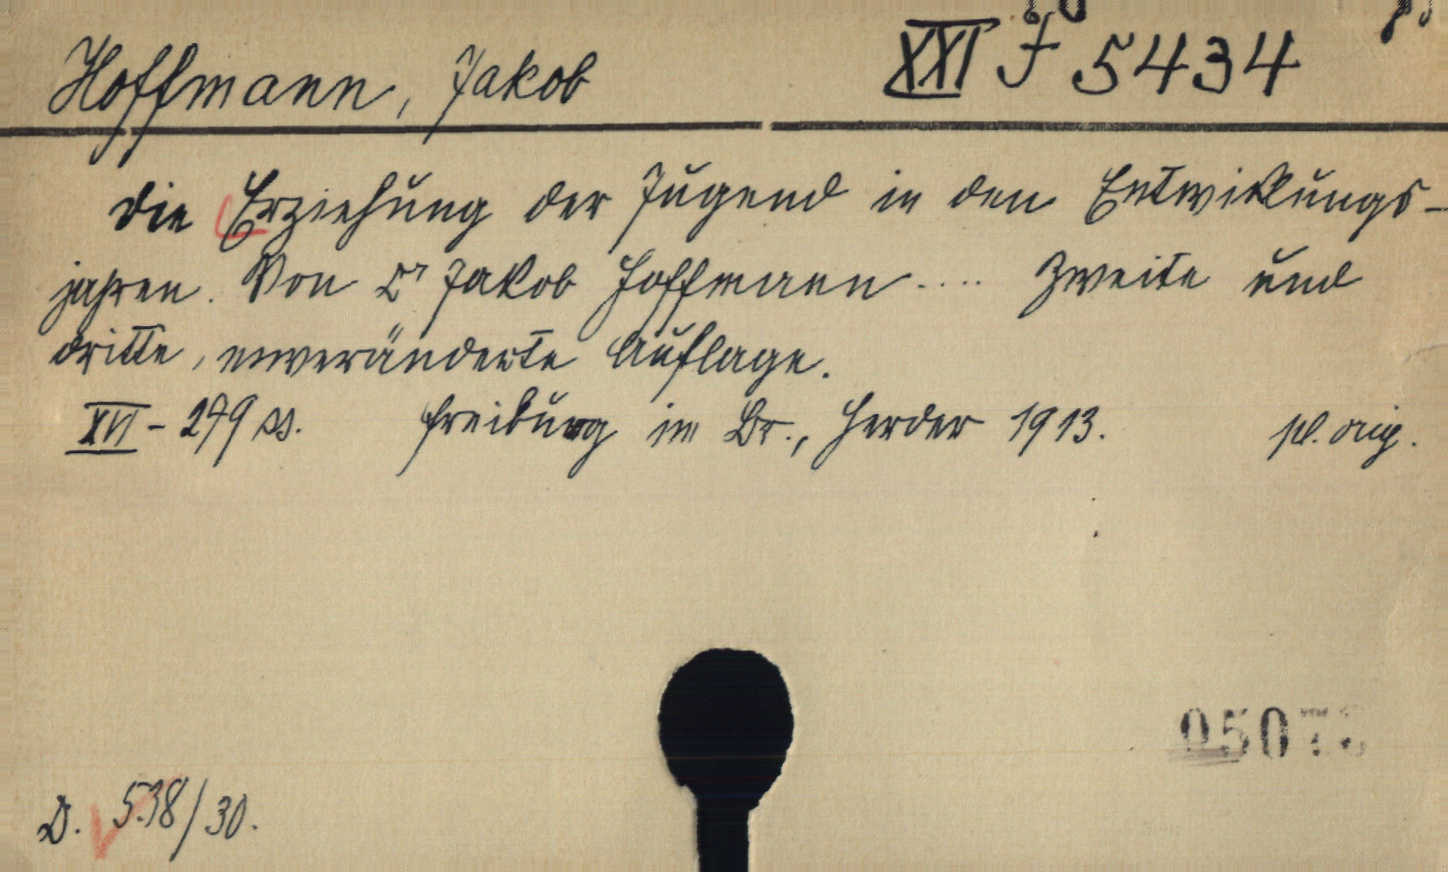 Hoffmann, Jakob XXI J 5434
Die Erziehung der Jugend in den Entwicklungs-
jahren. Von Dr Jakob Hoffmann .... Zweite und
dritte, unveränderte Auflage.
XVI - 279 ss. Freiburg im Br., Herder 1913. pl. orig.
0507
D. 538/30.